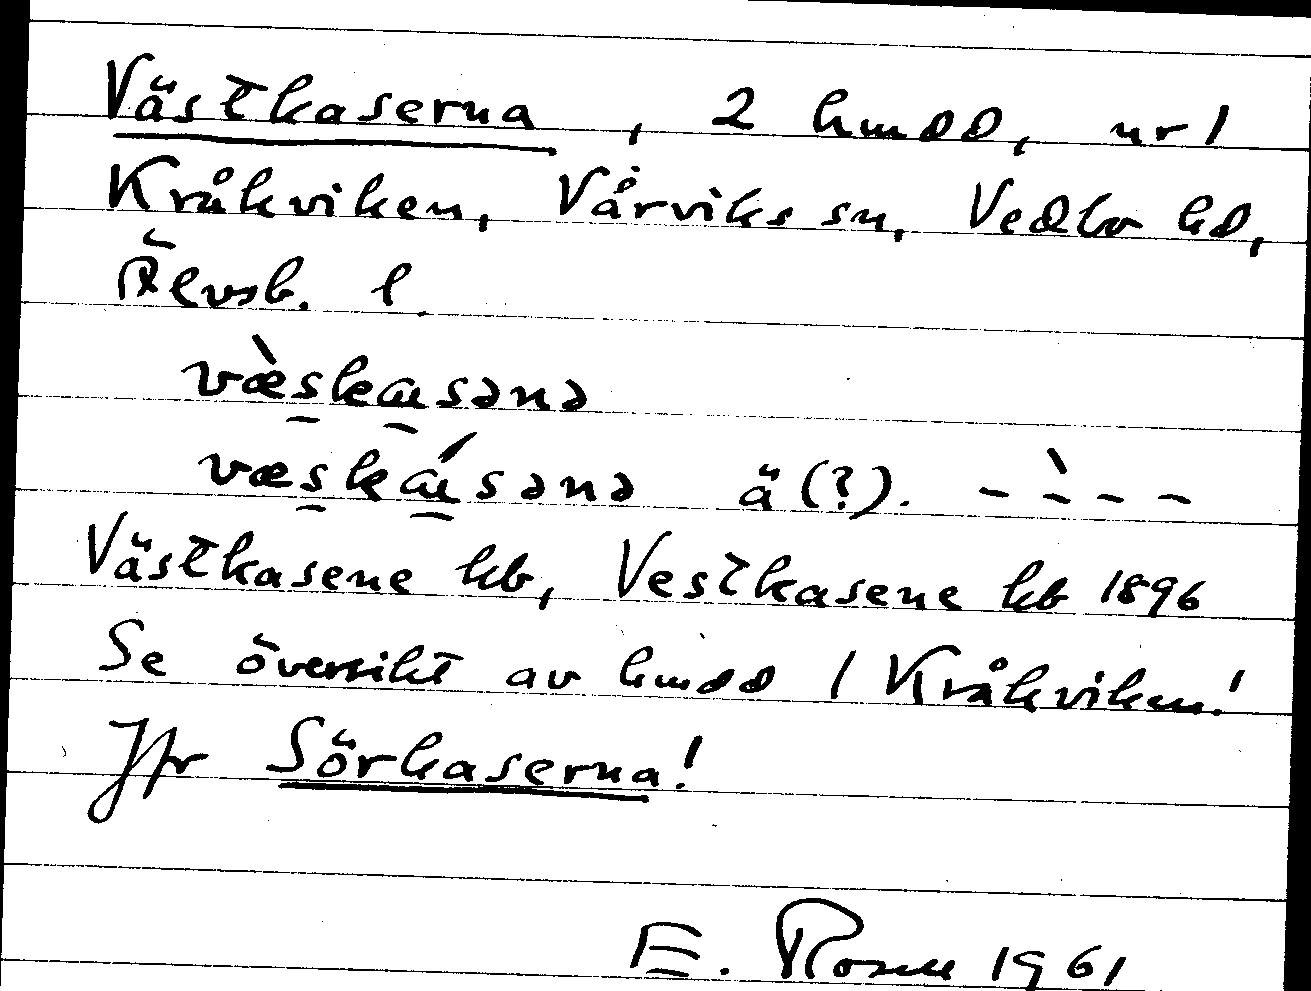 Västkaserna, 2 hmdd, nr 1
Kråkviken, Vårviks sn, Vedbo hd,
Älvsb. l.
væ̀skaɪsənə
væskáɪsənə ä(?). - -̀ - -
Västkasene kb, Vestkasene kb 1896
Se översikt av hmdd 1 Kråkviken!
Jfr Sörkaserna!
E. Rosell 1961